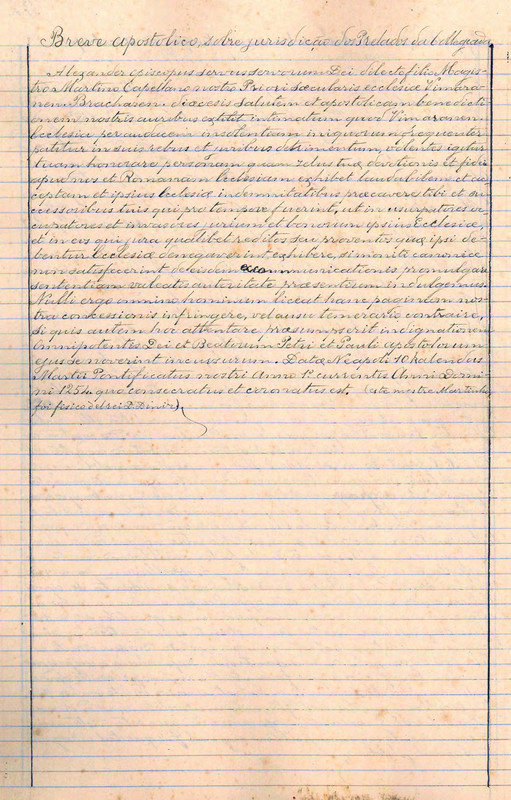 Breve apostolico, sobre jurisdicção dos Prelados da Collegiada
Alexander episcopus servus servorum Dei dilecto filio Magis-
tro Martino Capellano nostro Priori sæcularis ecclesiæ Vimara
nen. Bracharen. diœcesis salutem et apostolicam benedicti-
onem nostris auribus extitit intimatum quod Vimaranen.
Ecclesia per audaciam insolentiam iniquorum frequenter
patitur in suis rebus et juribus detrimentum, volentes igitur
tuam honorare personam quam zelus tuæ devotionis et fidei
apud nos et Romanam Ecclesiam exhibet laudabilem et ac
ceptam et ipsius Ecclesiæ indemnitatibus præcavere tibi et suc
cessoribus tuis qui pro tempore fuerint, ut in usurpatores oc
cupatores et invasores jurium et bonorum ipsius Ecclesiæ,
et in eos qui jura quælibet reditos seu proventos quæ ipsi de-
bentur Ecclesiæ denegaverint exhibere, si monite canonice
non satisfecerint de eisdem excommunicationis promulgare
sententiam valeatis autoritate præsentium indulgemus.
Nulli ergo omnino hominum liceat hanc paginam nos
træ concessionis infringere, vel ausu temerario contraire,
Si quis autem hoc attentare præsumpserit indignationem
omnipotentis Dei et Beatorum Petri et Pauli apostolorum
ejus se noverint incussurum. Data Neapoli 10 kalendis
Martii Pontificatus nostri Anno 1º currentis Anni Domi-
ni 1254 quo consecratus et coronatus est. (este mestre Martinho
foi fisico d'el rei D. Diniz).